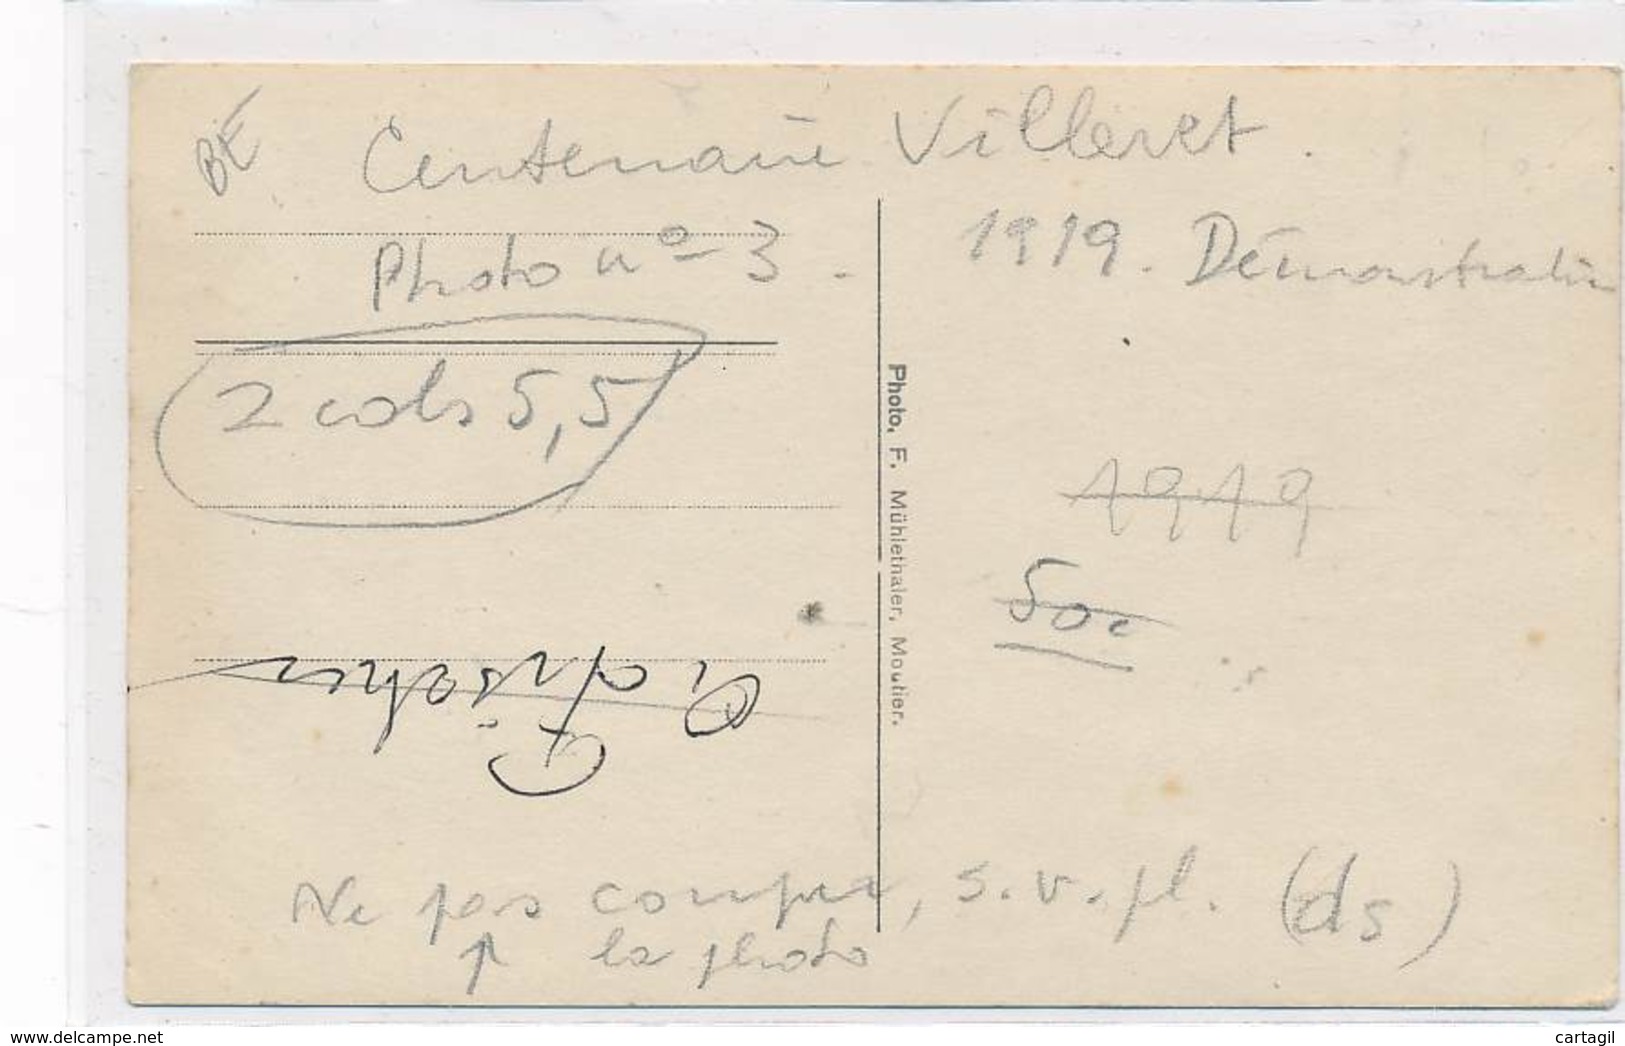 BE
Centenaire Villeret.
Photo n° 3. 1919. Démonstration
2 cols 5,5
Photo, F. Mühlethaler, Moutier.
1919
50c
Ne pas couper, s.v.pl. (ds)
la photo
www.delcampe.net
cartagil